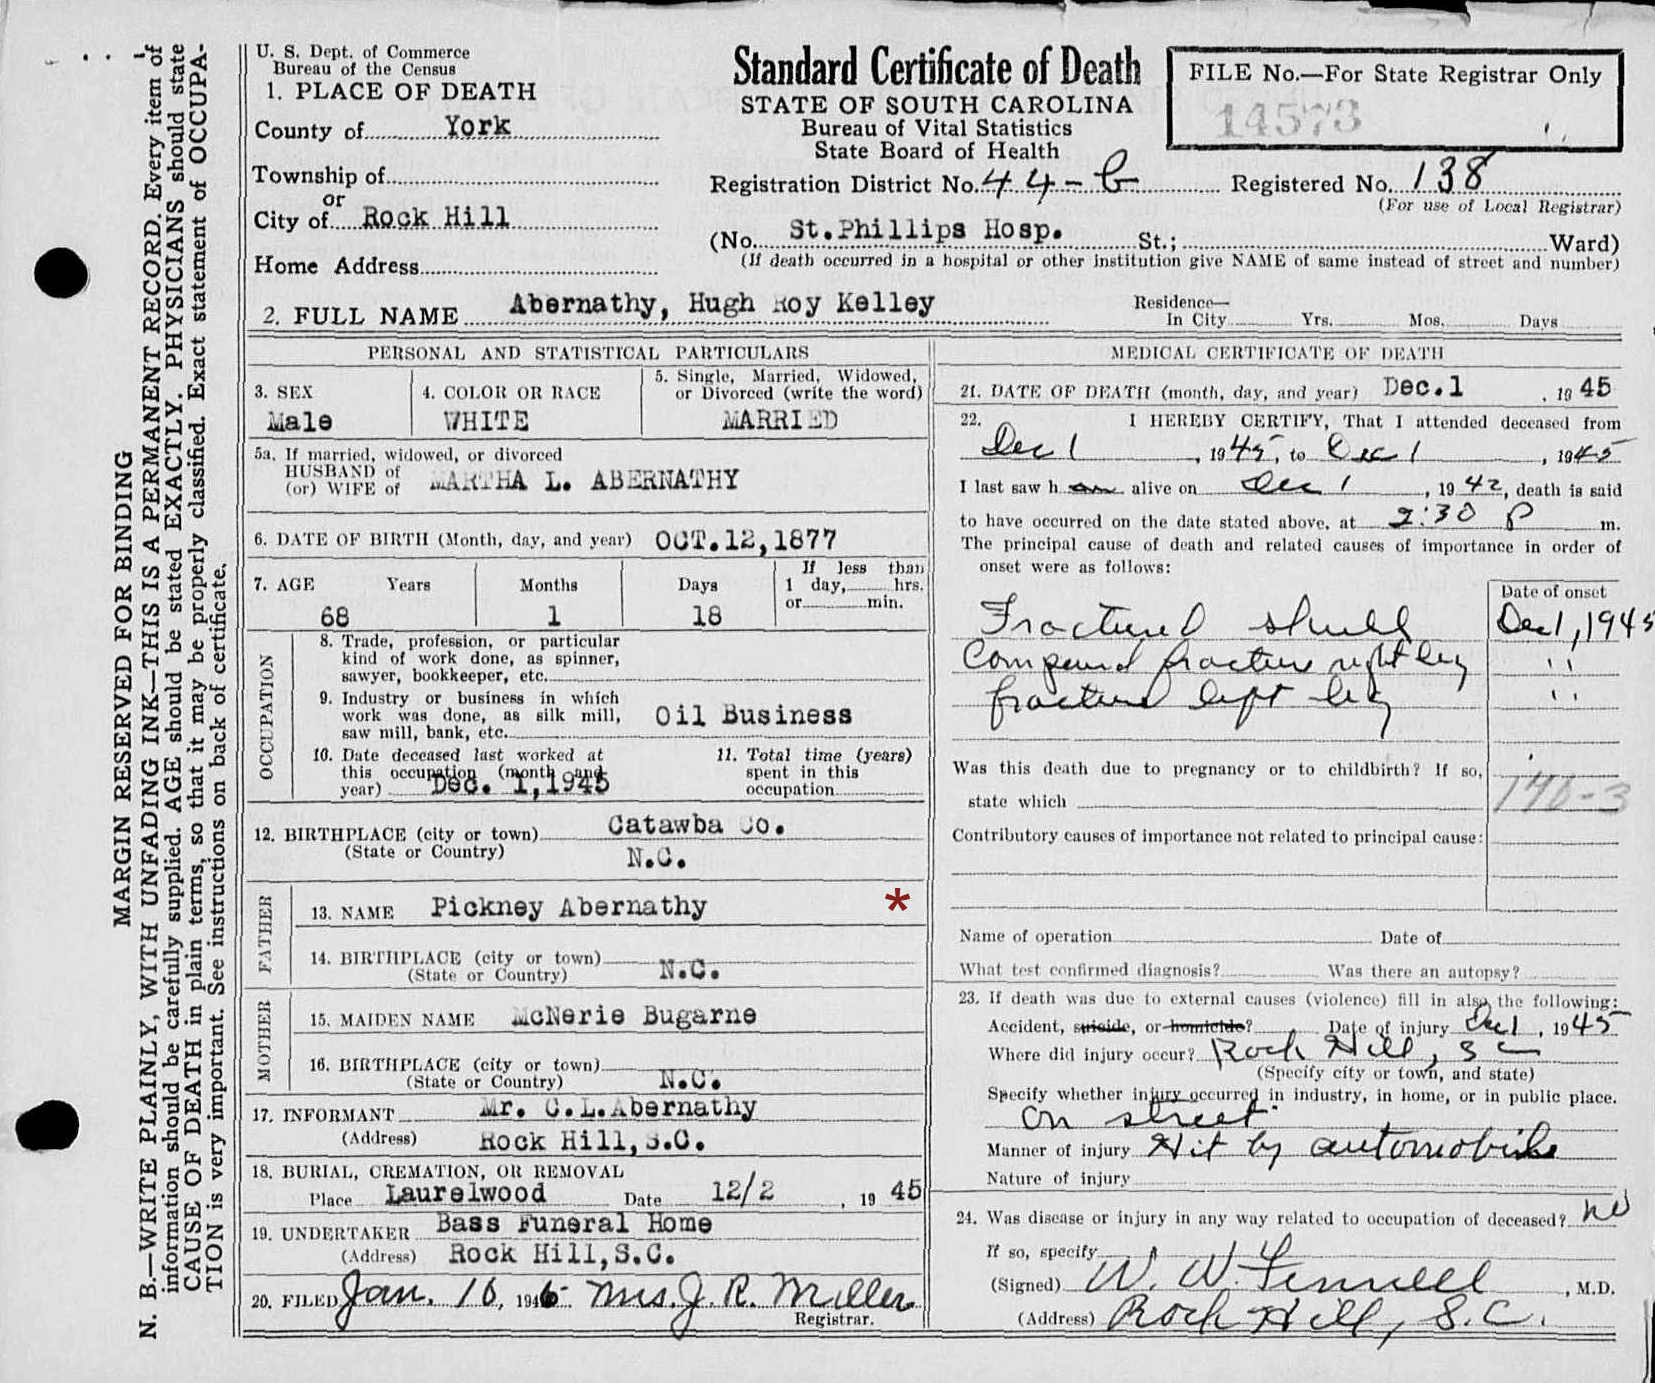 MARGIN RESERVED FOR BINDING
N. B.—WRITE PLAINLY, WITH UNFADING INK—THIS IS A PERMANENT RECORD. Every item of
information should be carefully supplied. AGE should be stated EXACTLY. PHYSICIANS should state
CAUSE OF DEATH in plain terms, so that it may be properly classified. Exact statement of OCCUPA-
TION is very important. See instructions on back of certificate.
U. S. Dept. of Commerce
Bureau of the Census
Standard Certificate of Death
STATE OF SOUTH CAROLINA
Bureau of Vital Statistics
State Board of Health
FILE No.—For State Registrar Only
14573
1. PLACE OF DEATH
County of York
Township of
or
City of Rock Hill
Home Address
Registration District No. 44-B Registered No. 138
(For use of Local Registrar)
(No. St.Phillips Hosp. St.; Ward)
(If death occurred in a hospital or other institution give NAME of same instead of street and number)
2. FULL NAME Abernathy, Hugh Roy Kelley
Residence—
In City Yrs. Mos. Days
PERSONAL AND STATISTICAL PARTICULARS
3. SEX
Male
4. COLOR OR RACE
WHITE
5. Single, Married, Widowed,
or Divorced (write the word)
MARRIED
5a. If married, widowed, or divorced
HUSBAND of
(or) WIFE of MARTHA L. ABERNATHY
6. DATE OF BIRTH (Month, day, and year) OCT.12,1877
7. AGE Years Months Days
68 1 18
If less than
1 day, hrs.
or min.
OCCUPATION
8. Trade, profession, or particular
kind of work done, as spinner,
sawyer, bookkeeper, etc.
9. Industry or business in which
work was done, as silk mill,
saw mill, bank, etc. Oil Business
10. Date deceased last worked at
this occupation (month and
year) Dec. 1,1945
11. Total time (years)
spent in this
occupation
12. BIRTHPLACE (city or town) Catawba Co.
(State or Country) N.C.
FATHER
13. NAME Pickney Abernathy *
14. BIRTHPLACE (city or town)
(State or Country) N.C.
MOTHER
15. MAIDEN NAME McNerie Bugarne
16. BIRTHPLACE (city or town)
(State or Country) N.C.
17. INFORMANT Mr. C.L.Abernathy
(Address) Rock Hill,S.C.
18. BURIAL, CREMATION, OR REMOVAL
Place Laurelwood Date 12/2, 19 45
19. UNDERTAKER Bass Funeral Home
(Address) Rock Hill,S.C.
20. FILED Jan. 10, 1946 Mrs. J. R. Miller
Registrar.
MEDICAL CERTIFICATE OF DEATH
21. DATE OF DEATH (month, day, and year) Dec.1, 19 45
22. I HEREBY CERTIFY, That I attended deceased from
Dec 1, 1945, to Dec 1, 1945
I last saw h alive on Dec 1, 1942, death is said
to have occurred on the date stated above, at 2:30 P m.
The principal cause of death and related causes of importance in order of
onset were as follows:
Date of onset
Fractured skull Dec 1, 1945
Compound fracture right leg ''
fracture left leg ''
Was this death due to pregnancy or to childbirth? If so,
state which
Contributory causes of importance not related to principal cause:
Name of operation Date of
What test confirmed diagnosis? Was there an autopsy?
23. If death was due to external causes (violence) fill in also the following:
Accident, suicide, or homicide? Date of injury Dec 1, 1945
Where did injury occur? Rock Hill, S C
(Specify city or town, and state)
Specify whether injury occurred in industry, in home, or in public place.
On street.
Manner of injury Hit by automobile
Nature of injury
24. Was disease or injury in any way related to occupation of deceased? no
If so, specify
(Signed) W. W. Fennell, M.D.
(Address) Rock Hill, S.C.